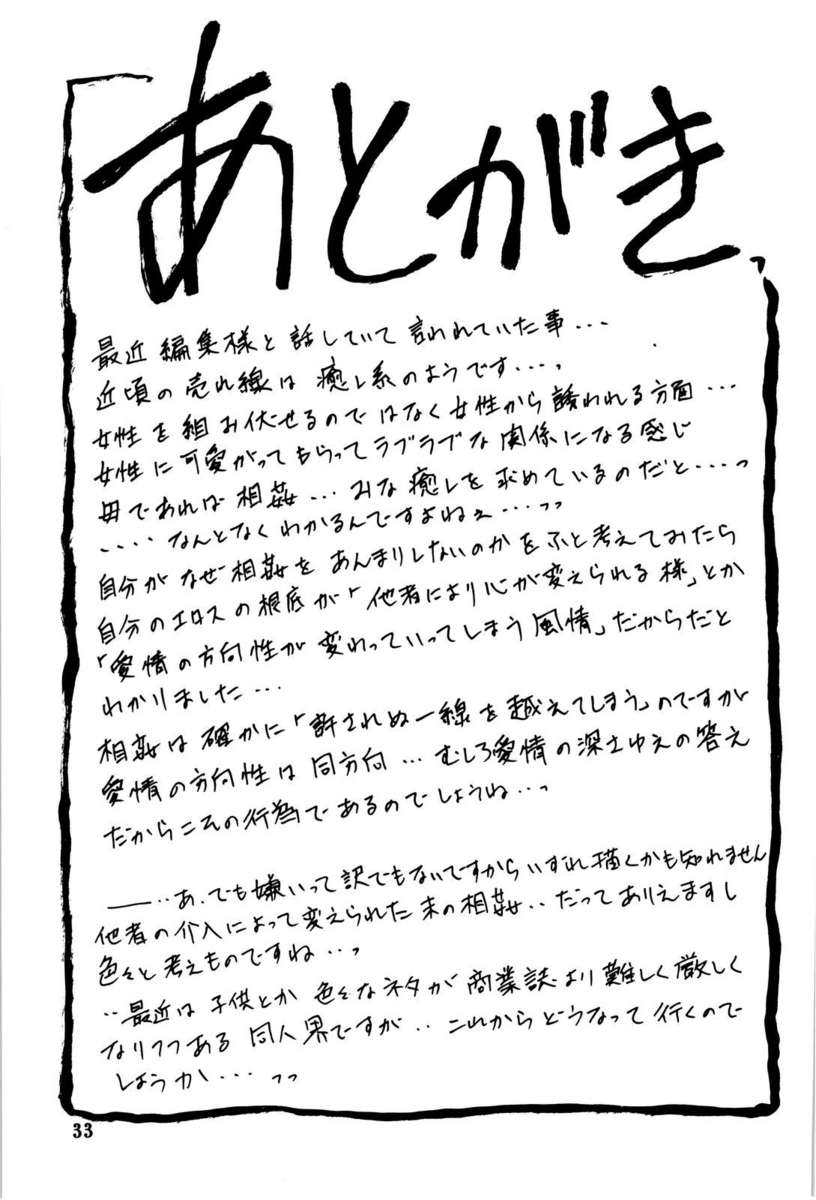 「あとがき」
最近 編集様と話していて 言われていた事・・・
近頃の売れ線は 癒し系のようです・・・っ
女性を組み伏せるのではなく女性から誘われる方面・・・
女性に可愛がってもらってラブラブな関係になる感じ
母であれば相姦・・・みな癒しを求めているのだと・・・っ
・・・・なんとなくわかるんですよねぇ・・・っっ
自分がなぜ相姦をあんまりしないのかをふと考えてみたら
自分のエロスの根底が「他者により心が変えられる様」とか
「愛情の方向性が変わっていってしまう風情」だからだと
わかりました・・・
相姦は確かに「許されぬ一線を越えてしまう」のですが
愛情の方向性は同方向・・・むしろ愛情の深さゆえの答え
だからこその行為であるのでしょうね・・っ
――・・あ、でも嫌いって訳でもないですからいずれ描くかも知れません
他者の介入によって変えられた末の相姦・・だってありえますし
色々と考えものですね・・っ
・・最近は子供とか色々なネタが商業誌より難しく厳しく
なりつつある同人界ですが・・これからどうなって行くので
しょうか・・・っっ
33